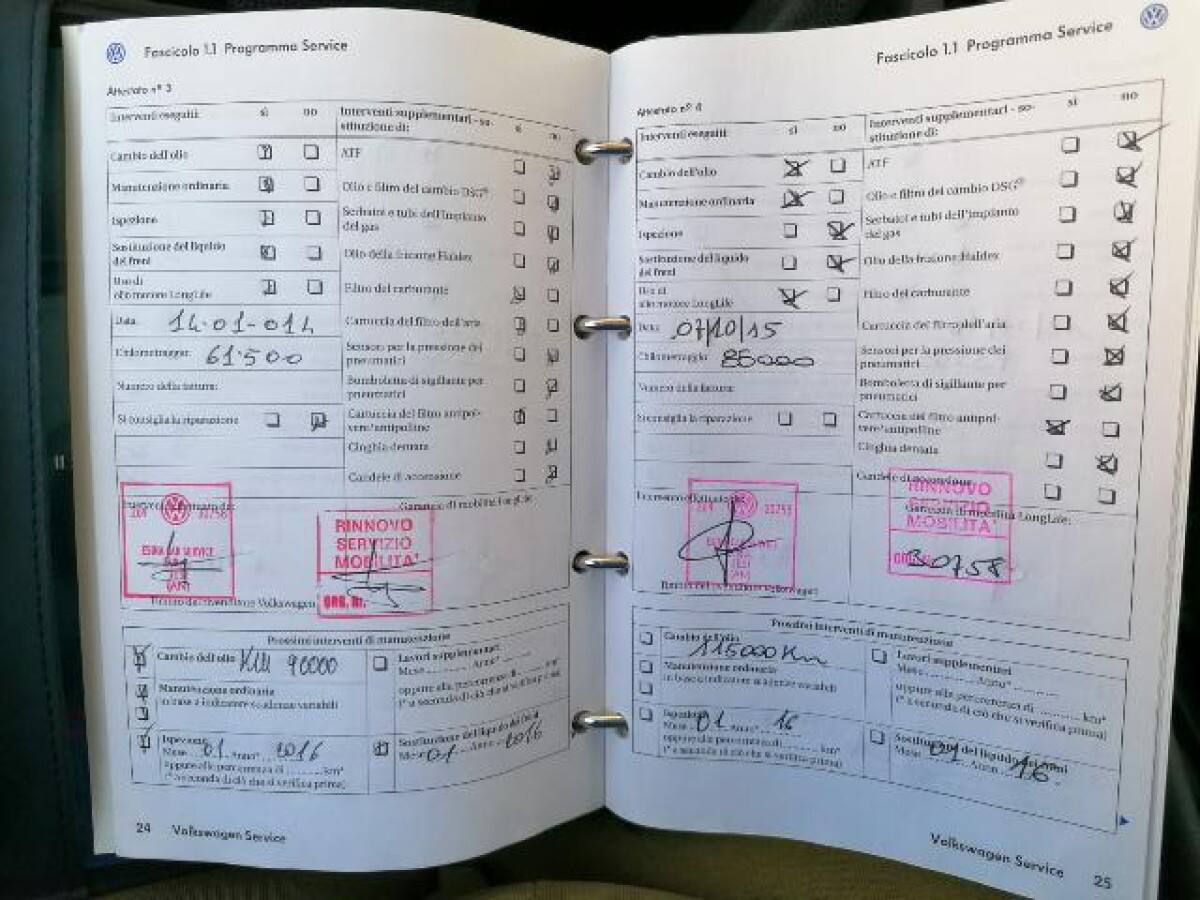 Fascicolo 1.1 Programma Service
Attestato nº 3
Interventi eseguiti: sì no
Cambio dell'olio
Manutenzione ordinaria
Ispezione
Sostituzione del liquido
dei freni
Uso di
olio motore LongLife
Data: 14-01-014
Chilometraggio: 61.500
Numero della fattura:
Si consiglia la riparazione
Interventi supplementari - so-
stituzione di: sì no
ATF
Olio e filtro del cambio DSG®
Serbatoi e tubi dell'impianto
del gas
Olio della frizione Haldex
Filtro del carburante
Cartuccia del filtro dell'aria
Sensori per la pressione dei
pneumatici
Bomboletta di sigillante per
pneumatici
Cartuccia del filtro antipol-
vere/antipolline
Cinghia dentata
Candele di accensione
Garanzia di mobilità LongLife:
SERVICE
(AN)
RINNOVO
SERVIZIO
MOBILITA'
ORG. Nr.
Timbro del rivenditore Volkswagen
Prossimi interventi di manutenzione
Cambio dell'olio KM 90000
Manutenzione ordinaria
in base a indicatore scadenze variabili
Ispezione
Mese 01 Anno* 2016
oppure alla percorrenza di ........... km*
(* a seconda di ciò che si verifica prima)
Lavori supplementari
Mese ........... Anno* ...........
oppure alla percorrenza di ........... km*
(* a seconda di ciò che si verifica prima)
Sostituzione del liquido dei freni
Mese 01 Anno 2016
24 Volkswagen Service
Fascicolo 1.1 Programma Service
Attestato nº 4
Interventi eseguiti: sì no
Cambio dell'olio
Manutenzione ordinaria
Ispezione
Sostituzione del liquido
dei freni
Uso di
olio motore LongLife
Data: 07/10/15
Chilometraggio: 85000
Numero della fattura:
Si consiglia la riparazione
Interventi supplementari - so-
stituzione di: sì no
ATF
Olio e filtro del cambio DSG®
Serbatoi e tubi dell'impianto
del gas
Olio della frizione Haldex
Filtro del carburante
Cartuccia del filtro dell'aria
Sensori per la pressione dei
pneumatici
Bomboletta di sigillante per
pneumatici
Cartuccia del filtro antipol-
vere/antipolline
Cinghia dentata
Candele di accensione
Garanzia di mobilità LongLife:
(AN)
RINNOVO
SERVIZIO
MOBILITA'
30758
Timbro del rivenditore Volkswagen
Prossimi interventi di manutenzione
Cambio dell'olio
115000 Km
Manutenzione ordinaria
in base a indicatore scadenze variabili
Ispezione
Mese 01 Anno* 16
oppure alla percorrenza di ........... km*
(* a seconda di ciò che si verifica prima)
Lavori supplementari
Mese ........... Anno* ...........
oppure alla percorrenza di ........... km*
(* a seconda di ciò che si verifica prima)
Sostituzione del liquido dei freni
Mese 01 Anno 16
Volkswagen Service 25